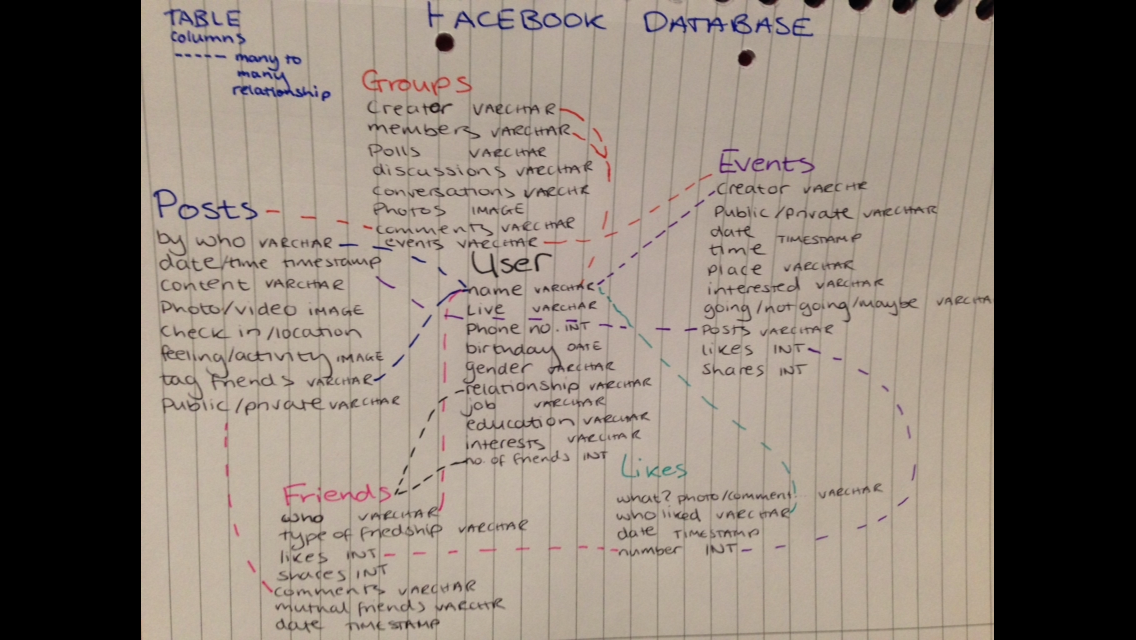 TABLE
columns
----- many to
many
relationship
FACEBOOK DATABASE
Groups
Creator VARCHAR
members VARCHAR
Polls VARCHAR
discussions VARCHAR
conversations VARCHR
Photos IMAGE
comments VARCHAR
events VARCHAR
Posts
by who VARCHAR
date/time timestamp
content VARCHAR
Photo/video IMAGE
check in/location
feeling/activity IMAGE
tag friends VARCHAR
Public/private VARCHAR
User
name VARCHAR
Live VARCHAR
Phone no. INT
birthday DATE
gender VARCHAR
relationship VARCHAR
job VARCHAR
education VARCHAR
interests VARCHAR
no. of friends INT
Events
Creator VARCHR
Public/private VARCHAR
date
time TIMESTAMP
place VARCHAR
interested VARCHAR
going/not going/maybe VARCHA
Posts VARCHAR
likes INT
shares INT
Friends
who VARCHAR
type of friedship VARCHAR
likes INT
shares INT
comments VARCHAR
mutual friends VARCHR
date TIMESTAMP
Likes
what? photo/comment VARCHAR
who liked VARCHAR
date TIMESTAMP
number INT